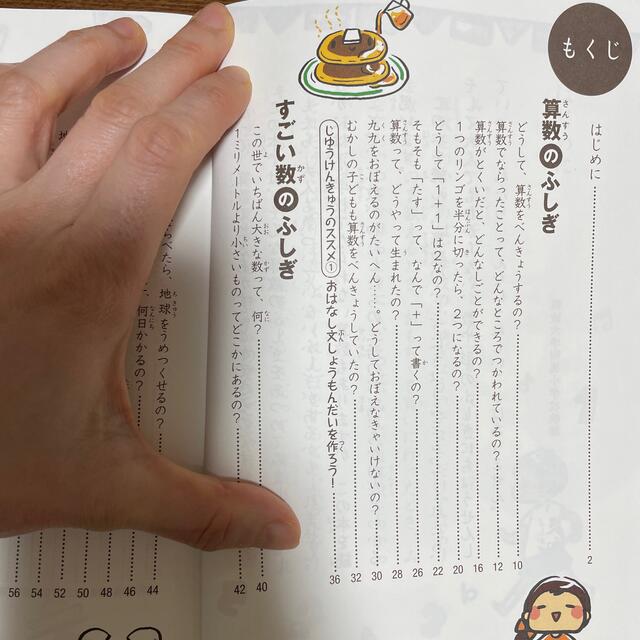 もくじ
はじめに 2
算数のふしぎ
どうして、算数をべんきょうするの? 10
算数でならったことって、どんなところでつかわれているの? 12
算数がとくいだと、どんなしごとができるの? 16
1つのリンゴを半分に切ったら、2つになるの? 20
どうして「1+1」は2なの? 22
そもそも「たす」って、なんで「+」って書くの? 26
算数って、どうやって生まれたの? 28
九九をおぼえるのがたいへん……。どうしておぼえなきゃいけないの? 30
むかしの子どもも算数をべんきょうしていたの? 32
じゆうけんきゅうのススメ① おはなし文しょうもんだいを作ろう! 36
すごい数のふしぎ
この世でいちばん大きな数って、何? 40
1ミリメートルより小さいものってどこかにあるの? 42
らべたら、地球をうめつくせるの?
、何日かかるの?
44
46
48
50
52
54
56